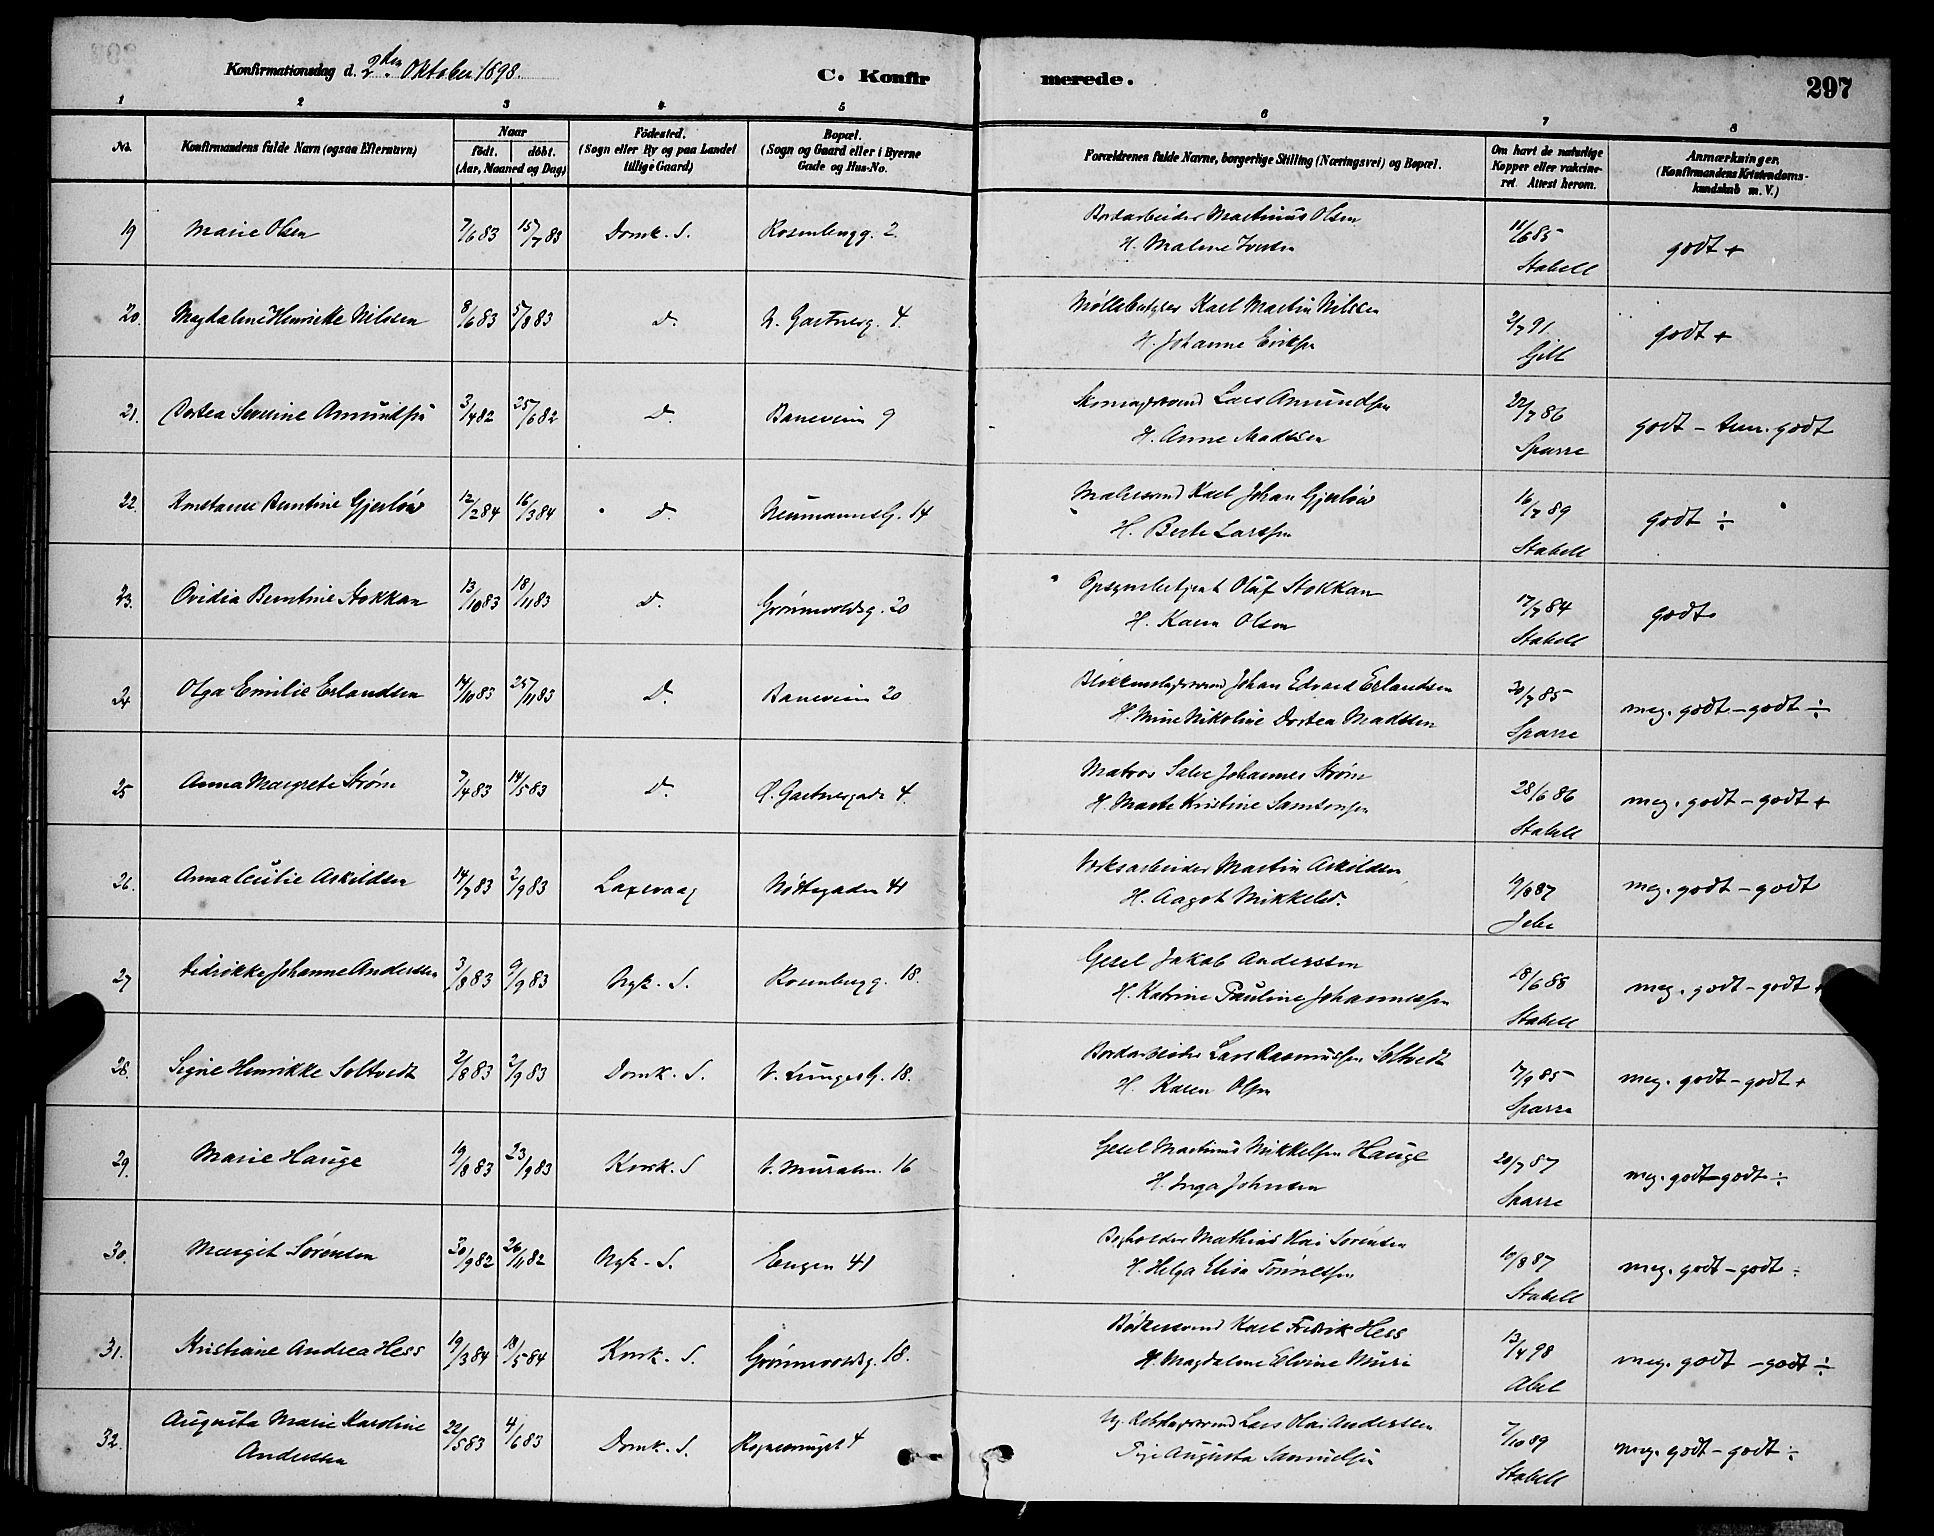 Konfirmationsdag d. 2den Oktober 1898.
C. Konfir merede.
297
1 2 3 4 5 6 7 8
No. Konfirmandens fulde Navn (ogsaa Efternavn) Naar födt. döbt. (Aar, Maaned og Dag) Födested. (Sogn eller By og paa Landet tillige Gaard) Bopæl. (Sogn og Gaard eller i Byerne Gade og Hus-No. Forældrenes fulde Navne, borgerlige Stilling (Næringsvei) og Bopæl. Om havt de naturlige Kopper eller vakcineret. Attest herom. Anmærkninger. (Konfirmandens Kristendomskundskab m. V.)
19 Marie Olsen 7/6 83 15/7 83 Domk. S. Rosenbergg. 2. Bordarbeider Martinus Olsen 11/6 85 godt +
H. Malene Iversen Stabell
20. Magdalene Henrikke Nilssen 8/6 83 5/8 83 D. N. Gartnerg. 4. Karl Martin Nilssen 2/7 91. godt +
H. Johanne Eriksen Gill
21. Dortea Severine Amundsen 3/4 82 25/6 82 D. Baneveien 9 Skomagersvend Lars Amundsen 22/7 86 godt - tem. godt
H. Anne Madssen Sparre
22. Konstanse Berntine Gjerløw 12/2 84 16/3 84 D. Neumannsg. 14 Malersvend Karl Johan Gjerløw 16/7 89 godt ÷
H. Berte Larssen Stabell
23. Ovidia Berntine Stokkan 13/10 83 18/11 83 D. Grønnevoldsg. 20 Opsynsbetjent Oluf Stokkan 17/7 84 godt
H. Karen Olsen Stabell
24 Olga Emilie Erlandsen 14/10 83 25/11 83 D. Baneveien 20 Blikkenslagersvend Johan Edvard Erlandsen 30/7 85 meg. godt - godt ÷
H. Mine Nikoline Dortea Madssen Sparre
25 Anna Margrete Strøm 7/4 83 14/5 83 D. Ø. Gartnergade 4. Matros Salve Johannes Strøm 28/6 86 meg. godt - godt +
H. Marte Kristine Samsonsen Stabell
26. Anna Cecilie Askildsen 14/7 83 2/9 83 Laxevaag Nøstegaden 41 Verksarbeider Martin Askildsen 19/8 87 meg. godt - godt
H. Aagot Mikkelsd. Jebe
27 Didrikke Johanne Anderssen 3/8 83 9/9 83 Nyk. S. Rosenbergg. 18. Gesel Jakob Anderssen 18/6 88 meg. godt - godt +
H. Katrine Pauline Johannessen Stabell
28. Signe Henrikke Soltvedt 2/8 83 2/9 83 Domk. S. V. Lungeg. 18. Bordarbeider Lars Rasmussen Soltvedt 17/9 85 meg. godt - godt +
H. Karen Olsen Sparre
29. Marie Hauge 19/8 83 23/9 83 Korsk. S V. Muralm. 16 Gesel Martinus Mikkelsen Hauge 20/7 87 meg. godt - godt ÷
H. Inga Johnsen Sparre
30. Margit Sørensen 30/9 82 26/11 82 Nyk. S. Engen 41 Bogholder Mathias Kai Sørensen 10/8 87 meg. godt - godt ÷
H. Helga Elisa Tønnessen Stabell
31. Kristiane Andrea Hess 19/3 84 18/5 84 Korsk. S. Grønnevoldsg. 18. Bødkersvend Karl Fredrik Hess 13/4 98 meg. godt - godt ÷
H. Magdalene Elvine Muri Abel
32. Augusta Marie Karoline 22/5 83 4/6 83 Domk. S. 4 Lars Olai Anderssen 7/10 89 meg. godt - godt ÷
Anderssen Pige Augusta Samuelsen Stabell